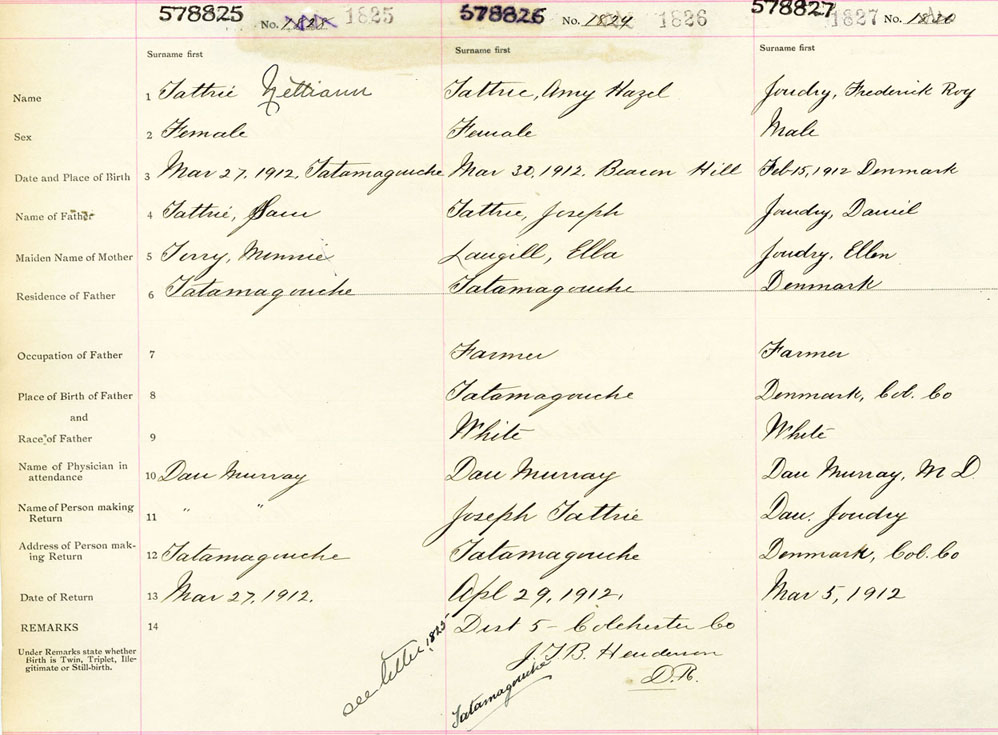 578825 No. 1825 578826 No. 1824 1826 578827 1827 No.
Surname first Surname first Surname first
Name 1 Tattrie Tattrie, Amy Hazel Joudry, Frederick Roy
Sex 2 Female Female Male
Date and Place of Birth 3 Mar 27, 1912, Tatamagouche Mar 30, 1912. Beacon Hill Feb 15, 1912 Denmark
Name of Father 4 Tattrie, Sam Tattrie, Joseph Joudry, Daniel
Maiden Name of Mother 5 Terry, Minnie Langill, Ella Joudry, Ellen
Residence of Father 6 Tatamagouche Tatamagouche Denmark
Occupation of Father 7 Farmer Farmer
Place of Birth of Father 8 Tatamagouche Denmark, Col. Co
and
Race of Father 9 White White
Name of Physician in
attendance 10 Dan Murray Dan Murray Dan Murray, M D.
Name of Person making
Return 11 " " Joseph Tattrie Dan. Joudry
Address of Person mak-
ing Return 12 Tatamagouche Tatamagouche Denmark, Col. Co
Date of Return 13 Mar 27, 1912. Apl 29, 1912. Mar 5, 1912
REMARKS 14 Dist 5 - Colchester Co
Under Remarks state whether
Birth is Twin, Triplet, Ille-
gitimate or Still-birth.
see letter 1825
J. T. B. Henderson
D. R.
Tatamagouche